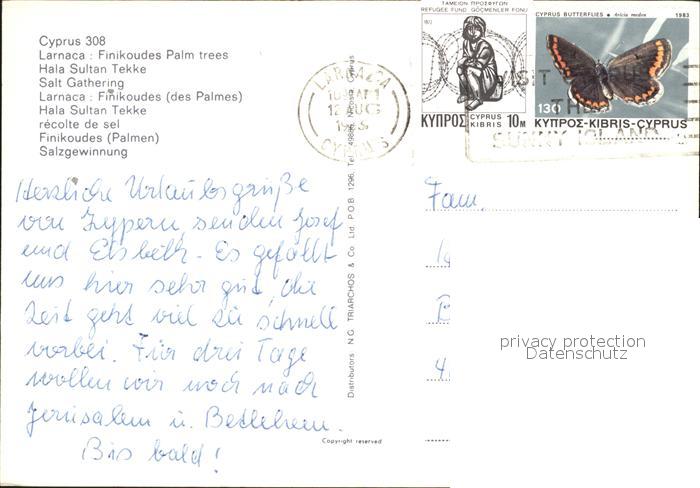 Cyprus 308
Larnaca : Finikoudes Palm trees
Hala Sultan Tekke
Salt Gathering
Larnaca : Finikoudes (des Palmes)
Hala Sultan Tekke
récolte de sel
Finikoudes (Palmen)
Salzgewinnung
Herzliche Urlaubsgrüße
von Zypern senden Josef
und Elsbeth. Es gefällt
uns hier sehr gut, die
Zeit geht viel zu schnell
vorbei. Für drei Tage
wollen wir noch nach
Jerusalem u. Betlehem.
Bis bald!
Copyright reserved
Distributors N.G. TRIARCHOS & Co. Ltd. P.O.B. 1296, Tel. Nicosia Cyprus
LARNACA
12 AUG
CYPRUS
ΤΑΜΕΙΟΝ ΠΡΟΣΦΥΓΩΝ
REFUGEE FUND GÖÇMENLER FONU
ΚΥΠΡΟΣ CYPRUS KIBRIS 10M
CYPRUS BUTTERFLIES • Aricia medon 1983
130
ΚΥΠΡΟΣ-KIBRIS-CYPRUS
VISIT
THE
SUNNY ISLAND
Fam.
privacy protection
Datenschutz